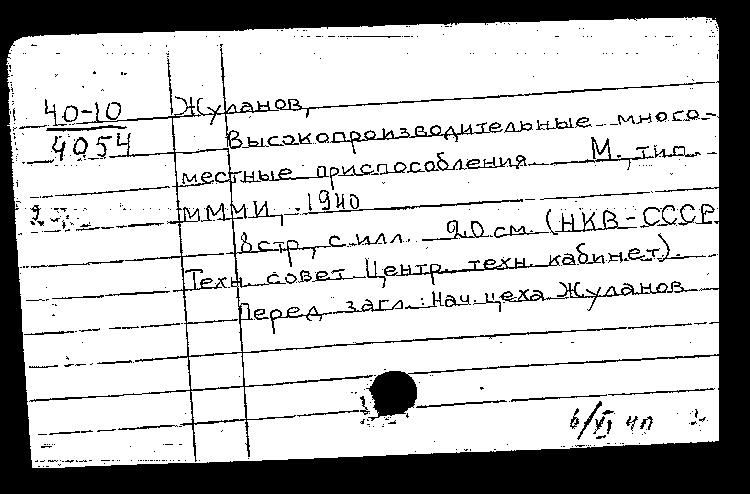 40-10
4054
Жуланов,
Высокопроизводительные много-
местные приспособления. М., тип.
МММИ, 1940
8 стр., с илл. 20 см. (НКВ-СССР.
Техн. совет. Центр. техн. кабинет).
Перед загл.: Нач. цеха Жуланов
6/VI 4п